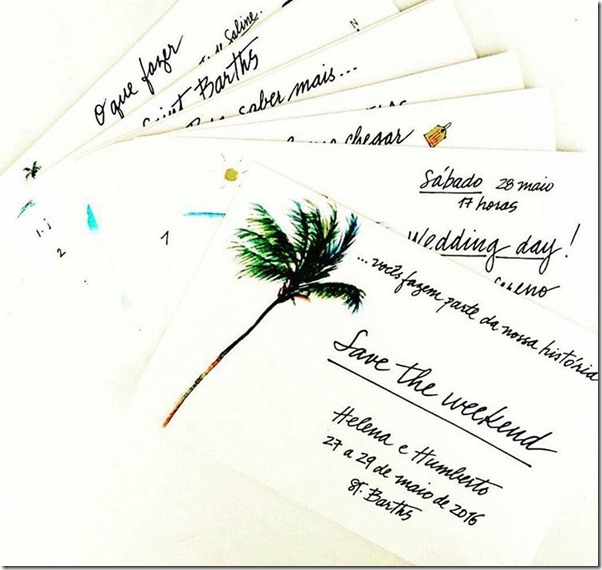 O que fazer
Saline.
Saint Barths
N
saber mais...
chegar
Sábado 28 maio
17 horas
Wedding day!
... vocês fazem parte da nossa história
Save the weekend
Helena e Humberto
27 a 29 de maio de 2016
St. Barths
1
2